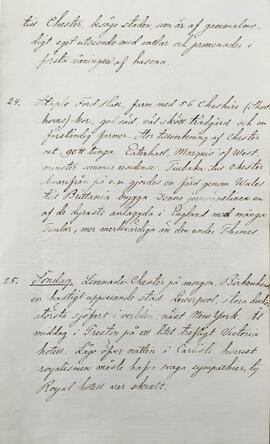 till Chester, besågo staden, som är af gammalmo-
digt, eget utseende med vallar och promenader i
första våningen af husena.
24. Staple Ford Hall, farm med 56 Cheshire (Short-
horns) kor, god jord, väl skött trädgård och en
förståndig farmer. Åter tillverkning af Chester
ost, gott tunga. Eatonhall, Marquis of West-
minster sommar residence. Tillbaka till Chester
hvarifrån på e.m gjordes en färd genom Wales
till Brittania brygga. Denna jernvägslinea en
af de dyraste anlagda i England med många
tunlar, mer märkvärdiga än den under Thames.
25. Söndag. Lemnades Chester på morgon, Birkenhead
en hastigt uppväxande stad. Liverpool, stora dockor
största sjöfart i verlden, näst New York. At
middag i Preston på ett litet trefligt Victoria
hotell. Låg öfver natten i Carlisle hvarest
royalismen måste hafva svaga sympathier, ty
Royal hotell var skralt.